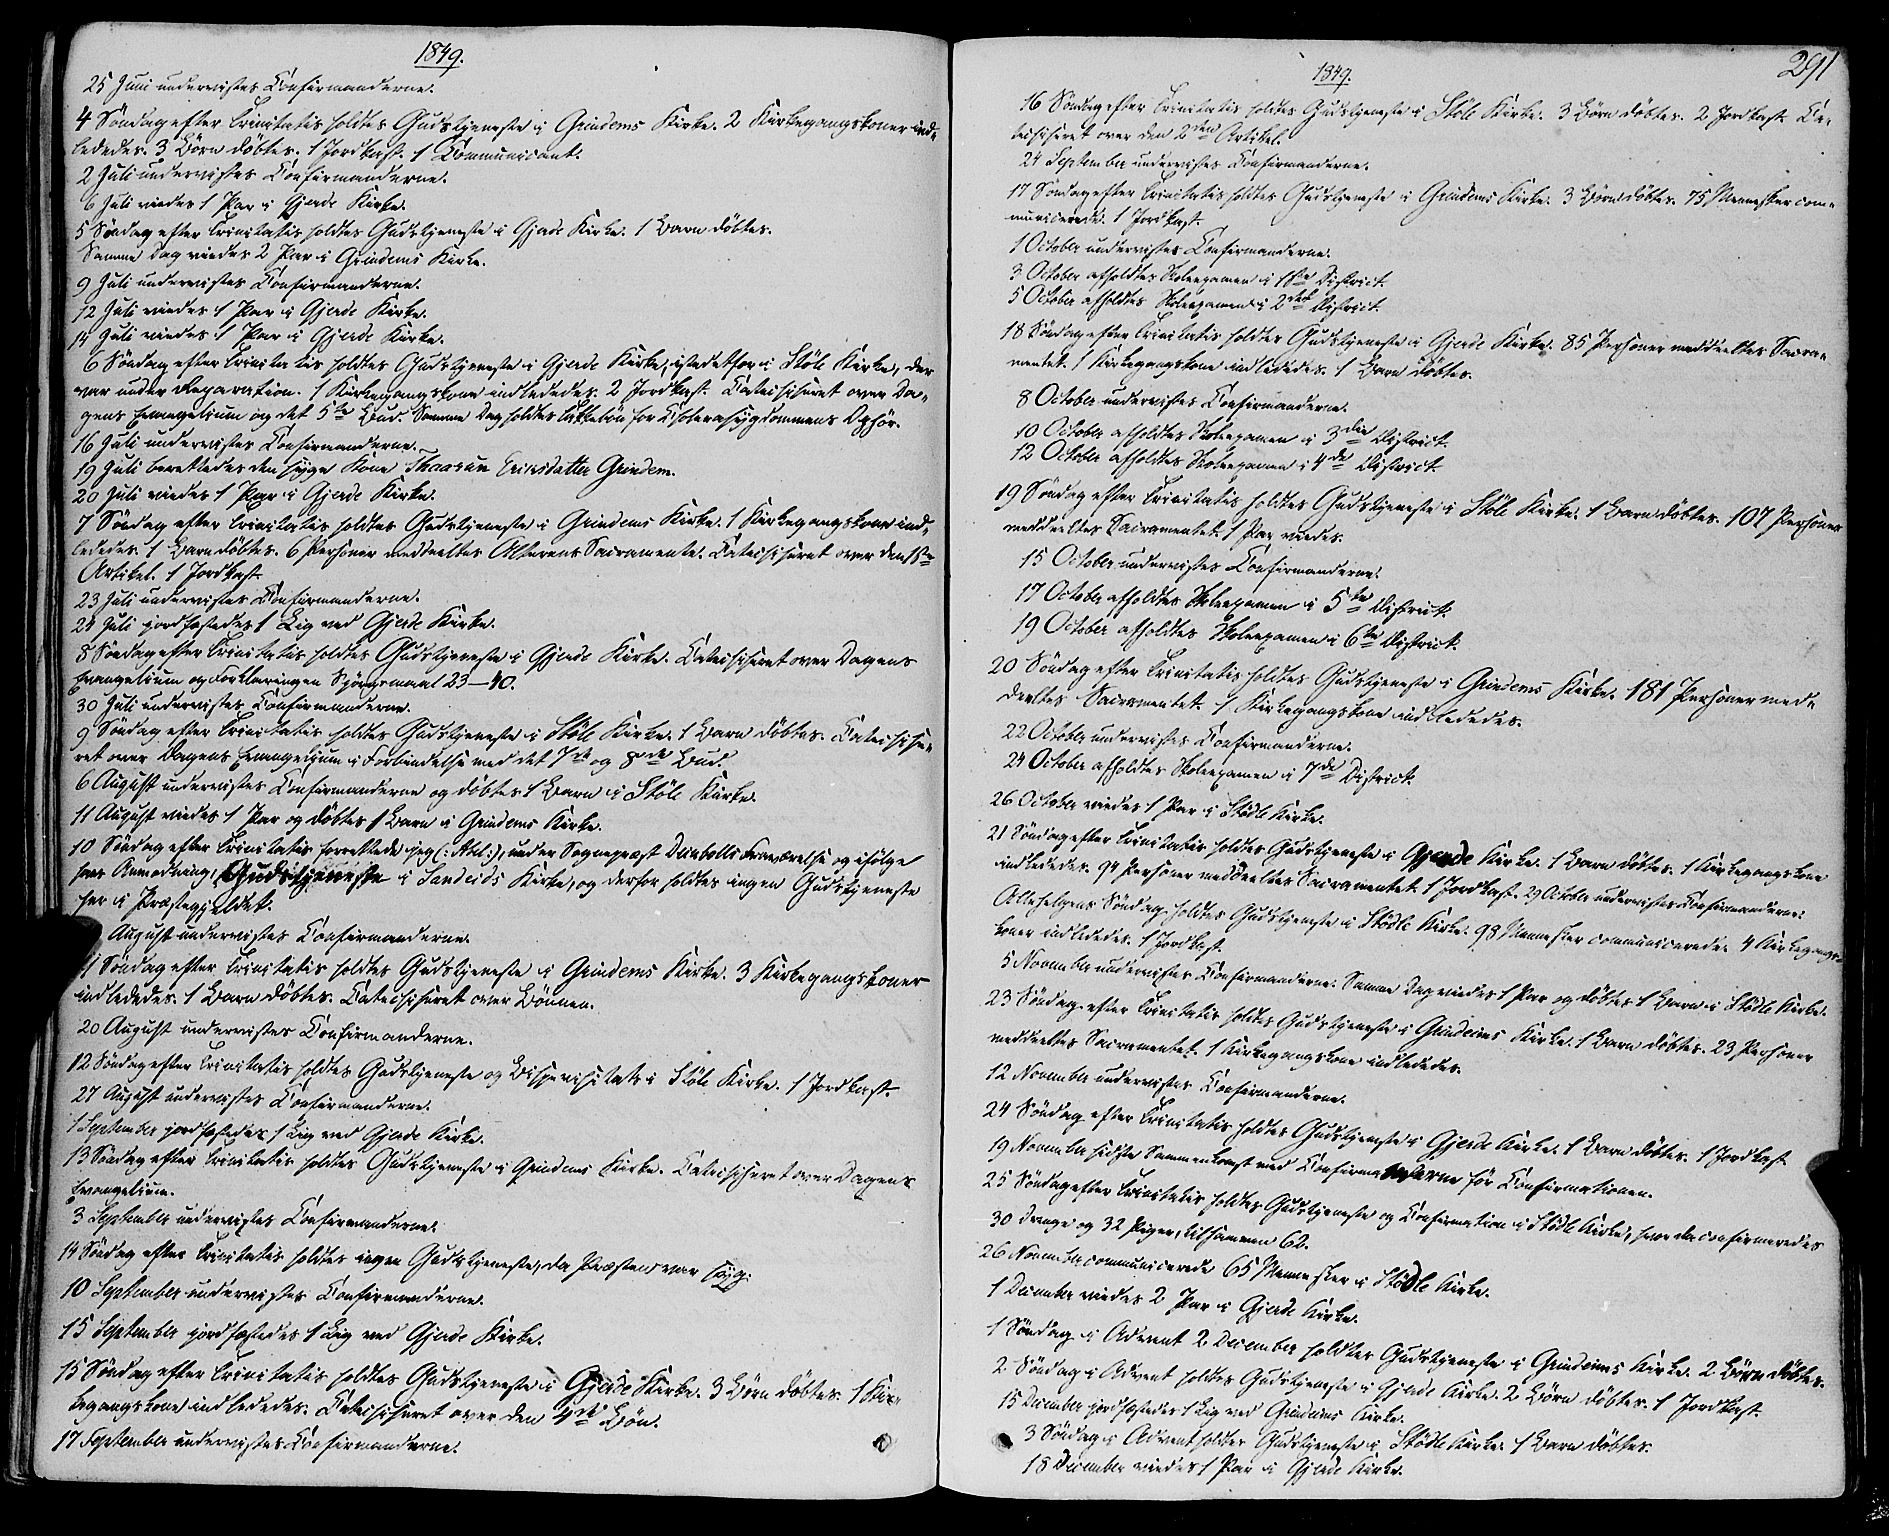 1849.
25 Juni underviistes Confirmanderne.
4 Söndag efter Trinitatis holdtes Gudstjeneste i Grindems Kirke. 2 Kirkegangskoner ind-
lededes. 3 Börn döbtes. 1 Jordkast. 1 Communicant.
2 Juli underviistes Confirmanderne.
6 Juli viedes 1 Par i Gjerde Kirke.
5 Söndag efter Trinitatis holdtes Gudstjeneste i Gjerde Kirke. 1 Barn döbtes.
Samme Dag viedes 2 Par i Grindems Kirke.
9 Juli underviistes Confirmanderne.
12 Juli viedes 1 Par i Gjerde Kirke.
14 Juli viedes 1 Par i Gjerde Kirke.
6 Söndag efter Trinitatis holdtes Gudstjeneste i Gjerde Kirke, istedetfor i Stöle Kirke, der
var under Reparation. 1 Kirkegangskone indlededes. 2 Jordkast. Catechiseret over Da-
gens Evangelium og det 5te Bud. Samme Dag holdtes Takkebön for Cholerasygdommens Ophör.
16 Juli underviistes Confirmanderne.
19 Juli berettedes den syge Kone Thaarun Eriksdatter Grindem.
20 Juli viedes 1 Par i Gjerde Kirke.
7 Söndag efter Trinitatis holdtes Gudstjeneste i Grindems Kirke. 1 Kirkegangskone ind-
lededes. 1 Barn döbtes. 6 Personer meddeeltes Alterens Sacramente. Catechiseret over den 1ste
Artikel. 1 Jordkast.
23 Juli underviistes Confirmanderne.
24 Juli jordfæstedes 1 Lig ved Gjerde Kirke.
8 Söndag efter Trinitatis holdtes Gudstjeneste i Gjerde Kirke. Catechiseret over Dagens
Evangelium og Forklaringen Spörgsmaal 23–40.
30 Juli underviistes Confirmanderne.
9 Söndag efter Trinitatis holdtes Gudstjeneste i Stöle Kirke. 1 Barn döbtes. Catechise-
ret over Dagens Evangelium i Forbindelse med det 7de og 8de Bud.
6 August underviistes Confirmanderne og döbtes 1 Barn i Stöle Kirke.
11 August viedes 1 Par og döbtes 1 Barn i Grindems Kirke.
10 Söndag efter Trinitatis forrettede jeg, under Sognepræst Fraværelse og ifölge
hans Anmodning, Gudstjeneste i Sandeids Kirke, og derfor holdtes ingen Gudstjeneste
her i Præstegjeldet.
August underviistes Confirmanderne.
11 Söndag efter Trinitatis holdtes Gudstjeneste i Grindems Kirke. 3 Kirkegangskoner
indlededes. 1 Barn döbtes. Catechiseret over Bönnen.
20 August underviistes Confirmanderne.
12 Söndag efter Trinitatis holdtes Gudstjeneste og Bispevisitats i Stöle Kirke. 1 Jordkast.
27 August underviistes Confirmanderne.
1 September jordfæstedes 1 Lig ved Gjerde Kirke.
13 Söndag efter Trinitatis holdtes Gudstjeneste i Grindems Kirke. Catechiseret over Dagens
Evangelium.
3 September underviistes Confirmanderne.
14 Söndag efter Trinitatis holdtes ingen Gudstjeneste, da Præsten var syg.
10 September underviistes Confirmanderne.
15 September jordfæstedes 1 Lig ved Gjerde Kirke.
15 Söndag efter Trinitatis holdtes Gudstjeneste i Gjerde Kirke. 3 Börn döbtes. 1 Kir-
kegangskone indlededes. Catechiseret over den 4de Bön.
17 September underviistes Confirmanderne.
291
1849.
16 Söndag efter Trinitatis holdtes Gudstjeneste i Stöle Kirke. 3 Börn döbtes. 2 Jordkast. Ca-
techiseret over den 2den Artikel.
24 September underviistes Confirmanderne.
17 Söndag efter Trinitatis holdtes Gudstjeneste i Grindems Kirke. 3 Börn döbtes. 75 Mennesker com-
municerede. 1 Jordkast.
1 October underviistes Confirmanderne.
3 October afholdtes Skoleexamen i 1ste District.
5 October afholdtes Skoleexamen i 2det District.
18 Söndag efter Trinitatis holdtes Gudstjeneste i Gjerde Kirke. 85 Personer meddeeltes Sacra-
mentet. 1 Kirkegangskone indlededes. 1 Barn döbtes.
8 October underviistes Confirmanderne.
10 October afholdtes Skoleexamen i 3die District.
12 October afholdtes Skoleexamen i 4de District.
19 Söndag efter Trinitatis holdtes Gudstjeneste i Stöle Kirke. 1 Barn döbtes. 107 Personer
meddeeltes Sacramentet. 1 Par viedes.
15 October underviistes Confirmanderne.
17 October afholdtes Skoleexamen i 5te District.
19 October afholdtes Skoleexamen i 6te District.
20 Söndag efter Trinitatis holdtes Gudstjeneste i Grindems Kirke. 181 Personer med-
deeltes Sacramentet. 1 Kirkegangskone indlededes.
22 October underviistes Confirmanderne.
24 October afholdtes Skoleexamen i 7de District.
26 October viedes 1 Par i Stödle Kirke.
21 Söndag efter Trinitatis holdtes Gudstjeneste i Gjerde Kirke. 1 Barn döbtes. 1 Kirkegangskone
indlededes. 94 Personer meddeeltes Sacramentet. 1 Jordkast. 29 October underviistes Confirmanderne.
Allehelgens Söndag holdtes Gudstjeneste i Stödle Kirke. 98 Mennesker communicerede. 4 Kirkegangs-
koner indlededes. 1 Jordkast.
5 November underviistes Confirmanderne. Samme Dag viedes 1 Par og döbtes 1 Barn i Stödle Kirke.
23 Söndag efter Trinitatis holdtes Gudstjeneste i Grindeims Kirke. 1 Barn döbtes. 23 Personer
meddeeltes Sacramentet. 1 Kirkegangskone indlededes.
12 November underviistes Confirmanderne.
24 Söndag efter Trinitatis holdtes Gudstjeneste i Gjerde Kirke. 1 Barn döbtes. 1 Jordkast.
19 November sidste Sammenkomst med Confirmanderne för Confirmationen.
25 Söndag efter Trinitatis holdtes Gudstjeneste og Confirmation i Stödle Kirke, hvor da confirmeredes
30 Drenge og 32 Piger, tilsammen 62.
26 November communicerede 65 Mennesker i Stödle Kirke.
1 December viedes 2 Par i Gjerde Kirke.
1 Söndag i Advent 2 December holdtes Gudstjeneste i Grindeims Kirke. 2 Börn döbtes.
2 Söndag i Advent holdtes Gudstjeneste i Gjerde Kirke. 2 Börn döbtes. 1 Jordkast.
15 December jordfæstedes 1 Lig ved Grindeims Kirke.
3 Söndag i Advent holdtes Gudstjeneste i Stödle Kirke. 1 Barn döbtes.
18 December viedes 1 Par i Gjerde Kirke.